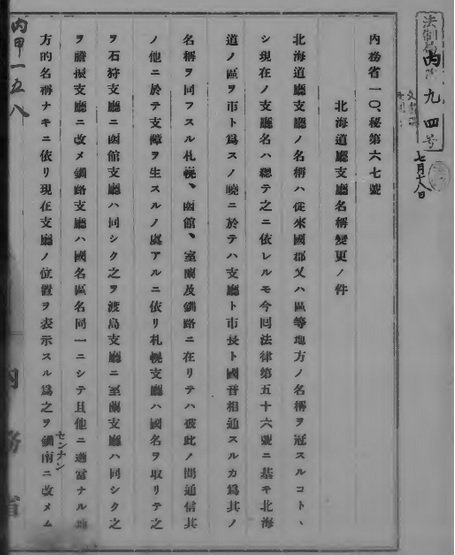 法制局
丙九四号
七月十八日
内務省一〇、秘第六七號
北海道廳支廳名稱變更ノ件
北海道廳支廳ノ名稱ハ從來國郡又ハ區等地方ノ名稱ヲ冠スルコトヽ
シ現在ノ支廳名ハ總テ之ニ依レルモ今回法律第五十六號ニ基キ北海
道ノ區ヲ市ト爲スノ曉ニ於テハ支廳ト市長ト國音相通スルカ爲其ノ
名稱ヲ同フスル札幌、函館、室蘭及釧路ニ在リテハ彼此ノ間通信其
ノ他ニ於テ支障ヲ生スルノ處アルニ依リ札幌支廳ハ國名ヲ取リテ之
ヲ石狩支廳ニ函館支廳ハ同シク之ヲ渡島支廳ニ室蘭支廳ハ同シク之
ヲ膽振支廳ニ改メ釧路支廳ハ國名區名同一ニシテ且他ニ適當ナル地
方的名稱ナキニ依リ現在支廳ノ位置ヲ表示スル爲之ヲ釧南ニ改メム
センナン
丙甲一五八
内務省